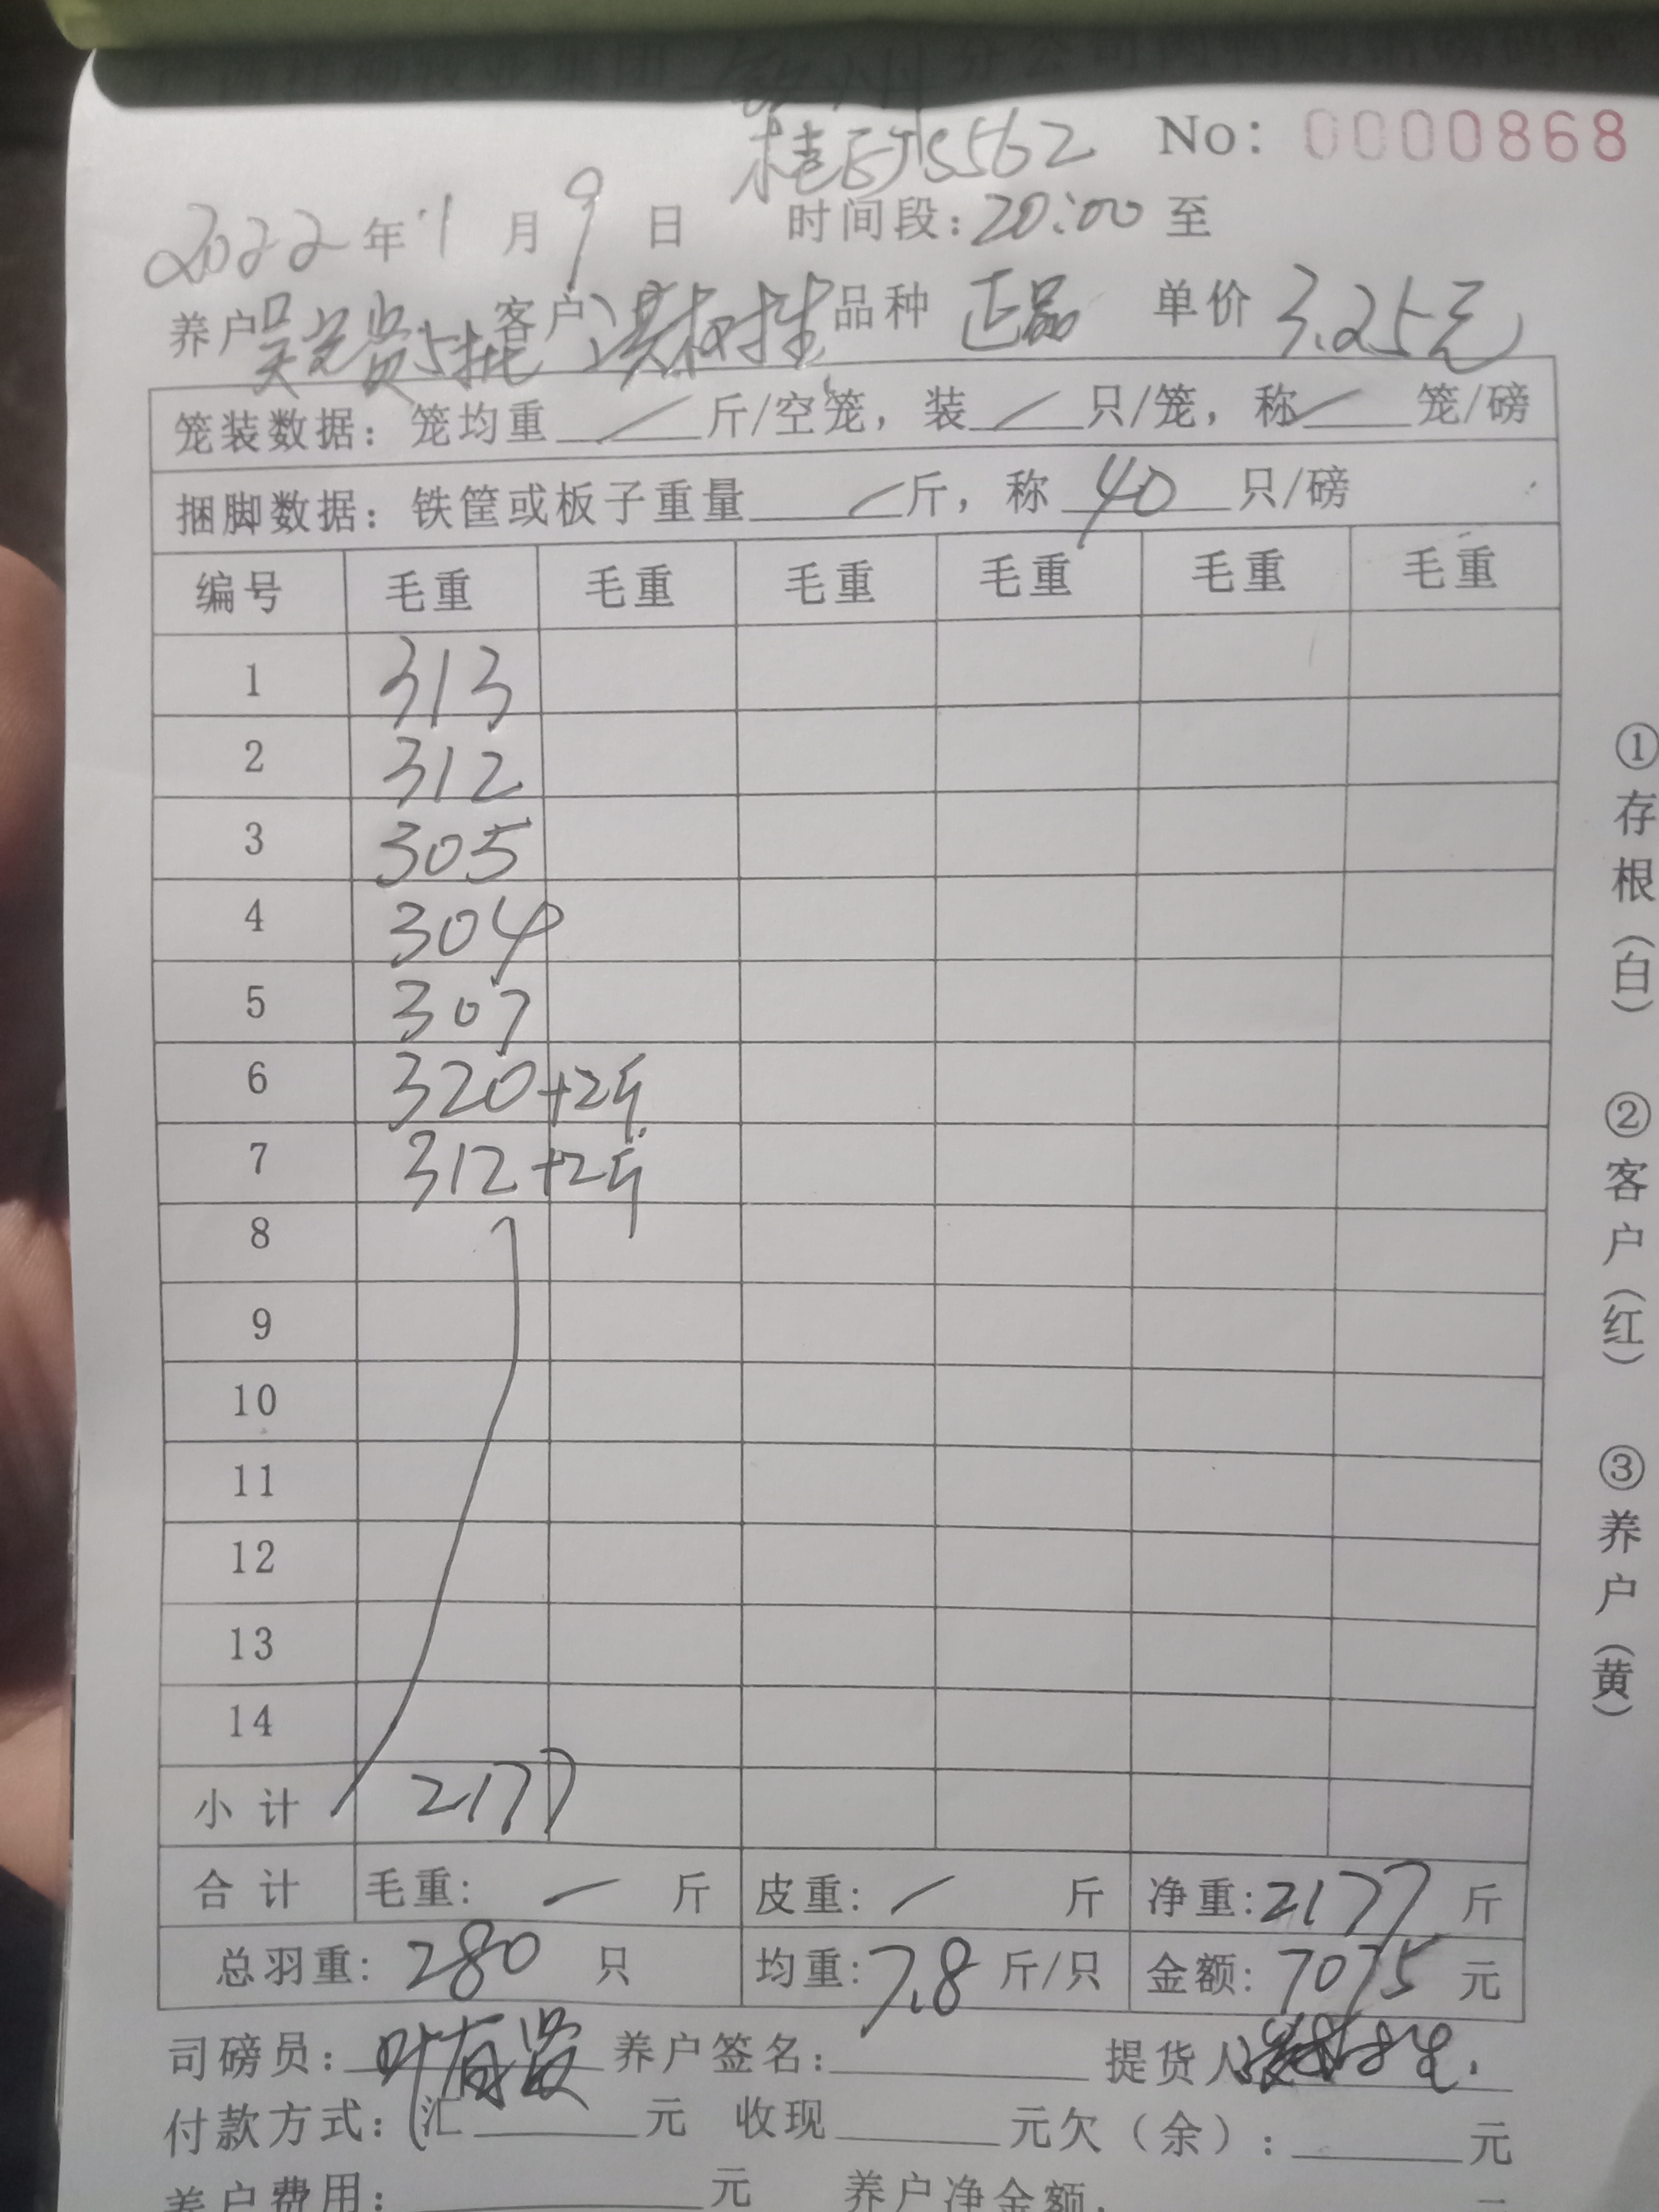 钦州 分公司肉鸭购销磅码单
桂E75562 No: 0000868
2022年11月9日 时间段:20:00至
养户 5批 客户 品种 正品 单价 3.25元
笼装数据: 笼均重 / 斤/空笼, 装 / 只/笼, 称 / 笼/磅
捆脚数据: 铁筐或板子重量 / 斤, 称 40 只/磅
编号 毛重 毛重 毛重 毛重 毛重 毛重
1 313
2 312
3 305
4 304
5 307
6 320+2斤
7 312+2斤
8
9
10
11
12
13
14
小计 2177
合计 毛重: — 斤 皮重: / 斤 净重:2177 斤
总羽重: 280 只 均重:7.8 斤/只 金额: 7075 元
司磅员: 叶有贤 养户签名: 提货人
付款方式: 汇 元 收现 元欠(余): 元
养户费用: 元 养户净金额: 元
①存根(白) ②客户(红) ③养户(黄)